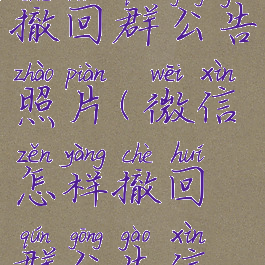 撤回群公告
zhào piàn wēi xìn
照片(微信
zěn yàng chè huí
怎样撤回
qún gōng gào xìn
群公告信